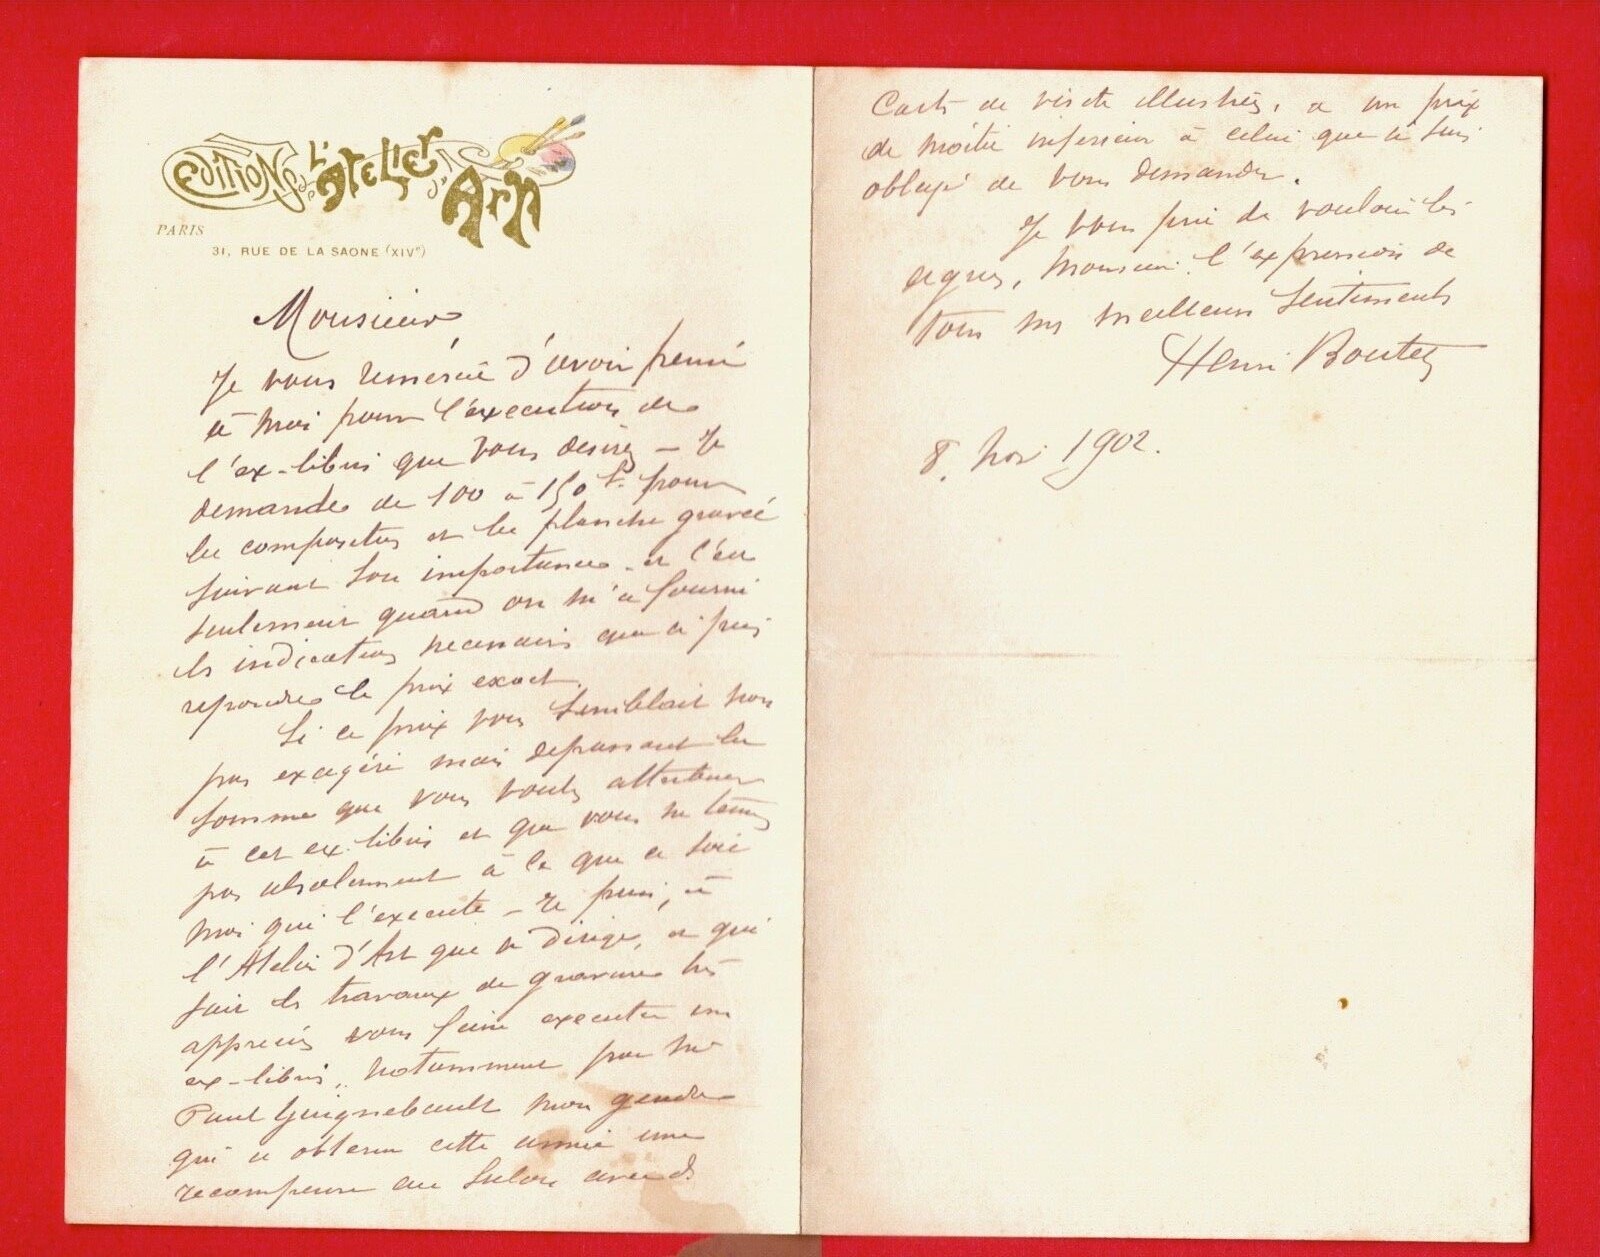 EDITIONS de L'ATELIER d'ART
PARIS
31, RUE DE LA SAONE (XIVe)
Monsieur
Je vous remercie d'avoir pensé
à moi pour l'execution de
l'ex-libris que vous desirez – Je
demande de 100 à 150 f. pour
la composition et la planche gravée
suivant son importance. et c'est
seulement quand on m'a fourni
les indications necessaires que je puis
repondre le prix exact.
Si ce prix vous semblait non
pas exagéré mais depassant la
somme que vous voulez
à cet ex libris et que vous ne teniez
pas absolument à ce que ce soit
moi qui l'execute – Je puis, à
l'Atelier d'Art que je dirige, et qui
fait des travaux de gravures très
appreciés vous faire executer un
ex-libris, notamment par Mr
Paul Guignebault mon gendre
qui a obtenu cette année une
recompense au Salon avec des
Cartes de visite illustrées. a un prix
de moitié inferieur à celui que je suis
obligé de vous demander.
Je vous prie de vouloir bien
agréer, Monsieur, l'expression de
tous mes meilleurs sentiments
Henri Boutet
8. Nov 1902.